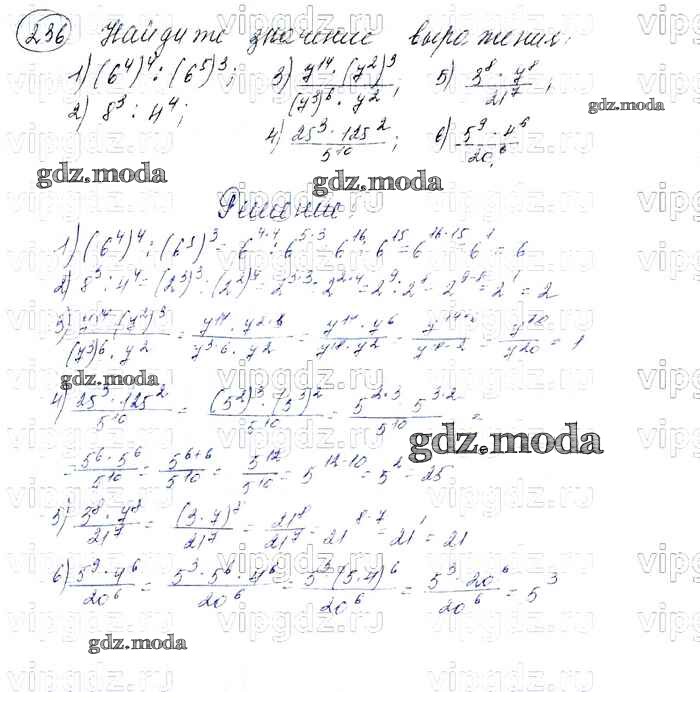 236 Найдите значение выражения:
1) (6⁴)⁴ : (6⁵)³; 3) 7¹⁴ · (7²)³ / (7³)⁶ · 7²; 5) 3⁸ · 7⁸ / 21⁷;
2) 8³ : 4⁴; 4) 25³ · 125² / 5¹⁰; 6) 5⁹ · 4⁶ / 20⁶;
gdz.moda
Решение:
1) (6⁴)⁴ : (6⁵)³ = 6⁴·⁴ : 6⁵·³ = 6¹⁶ : 6¹⁵ = 6¹⁶⁻¹⁵ = 6¹ = 6
2) 8³ : 4⁴ = (2³)³ : (2²)⁴ = 2³·³ : 2²·⁴ = 2⁹ : 2⁸ = 2⁹⁻⁸ = 2¹ = 2
3) 7¹⁴ · (7²)³ / (7³)⁶ · 7² = 7¹⁴ · 7²·³ / 7³·⁶ · 7² = 7¹⁴ · 7⁶ / 7¹⁸ · 7² = = 7²⁰ / 7²⁰ = 1
4) 25³ · 125² / 5¹⁰ = (5²)³ · (5³)² / 5¹⁰ = 5²·³ · 5³·² / 5¹⁰ =
= 5⁶ · 5⁶ / 5¹⁰ = 5⁶⁺⁶ / 5¹⁰ = 5¹² / 5¹⁰ = 5¹²⁻¹⁰ = 5² = 25
5) 3⁸ · 7⁸ / 21⁷ = (3 · 7)⁸ / 21⁷ = 21⁸ / 21⁷ = 21⁸⁻⁷ = 21¹ = 21
6) 5⁹ · 4⁶ / 20⁶ = 5³ · 5⁶ · 4⁶ / 20⁶ = 5³ · (5 · 4)⁶ / 20⁶ = 5³ · 20⁶ / 20⁶ = 5³
gdz.moda
vipgdz.ru